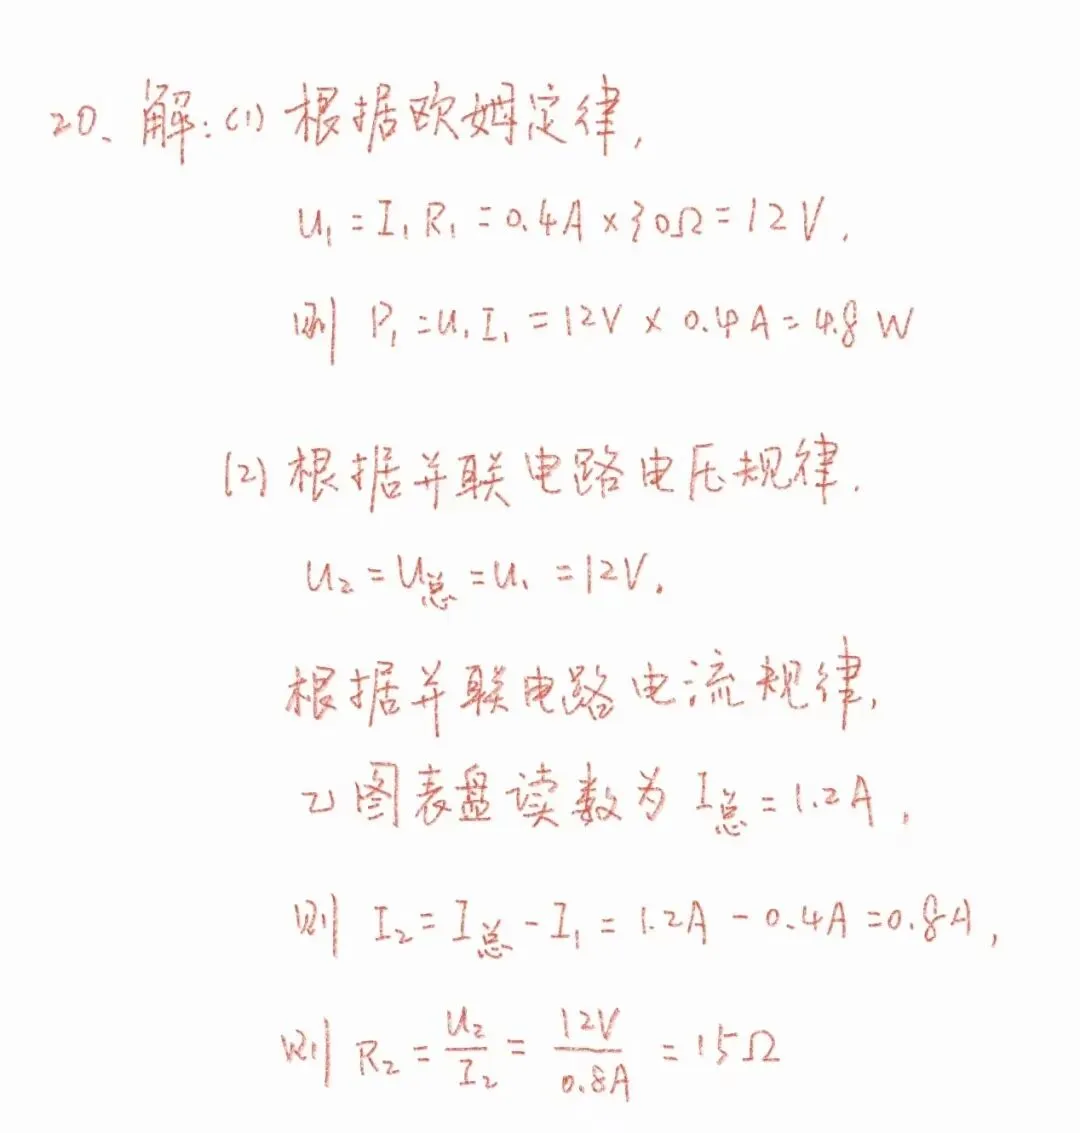 20、解:(1) 根据欧姆定律,
U₁=I₁R₁=0.4A×30Ω=12V,
则 P₁=U₁I₁=12V×0.4A=4.8W
(2) 根据并联电路电压规律,
U₂=U总=U₁=12V,
根据并联电路电流规律,
乙图表盘读数为 I总=1.2A,
则 I₂=I总-I₁=1.2A-0.4A=0.8A,
则 R₂=U₂/I₂=12V/0.8A=15Ω